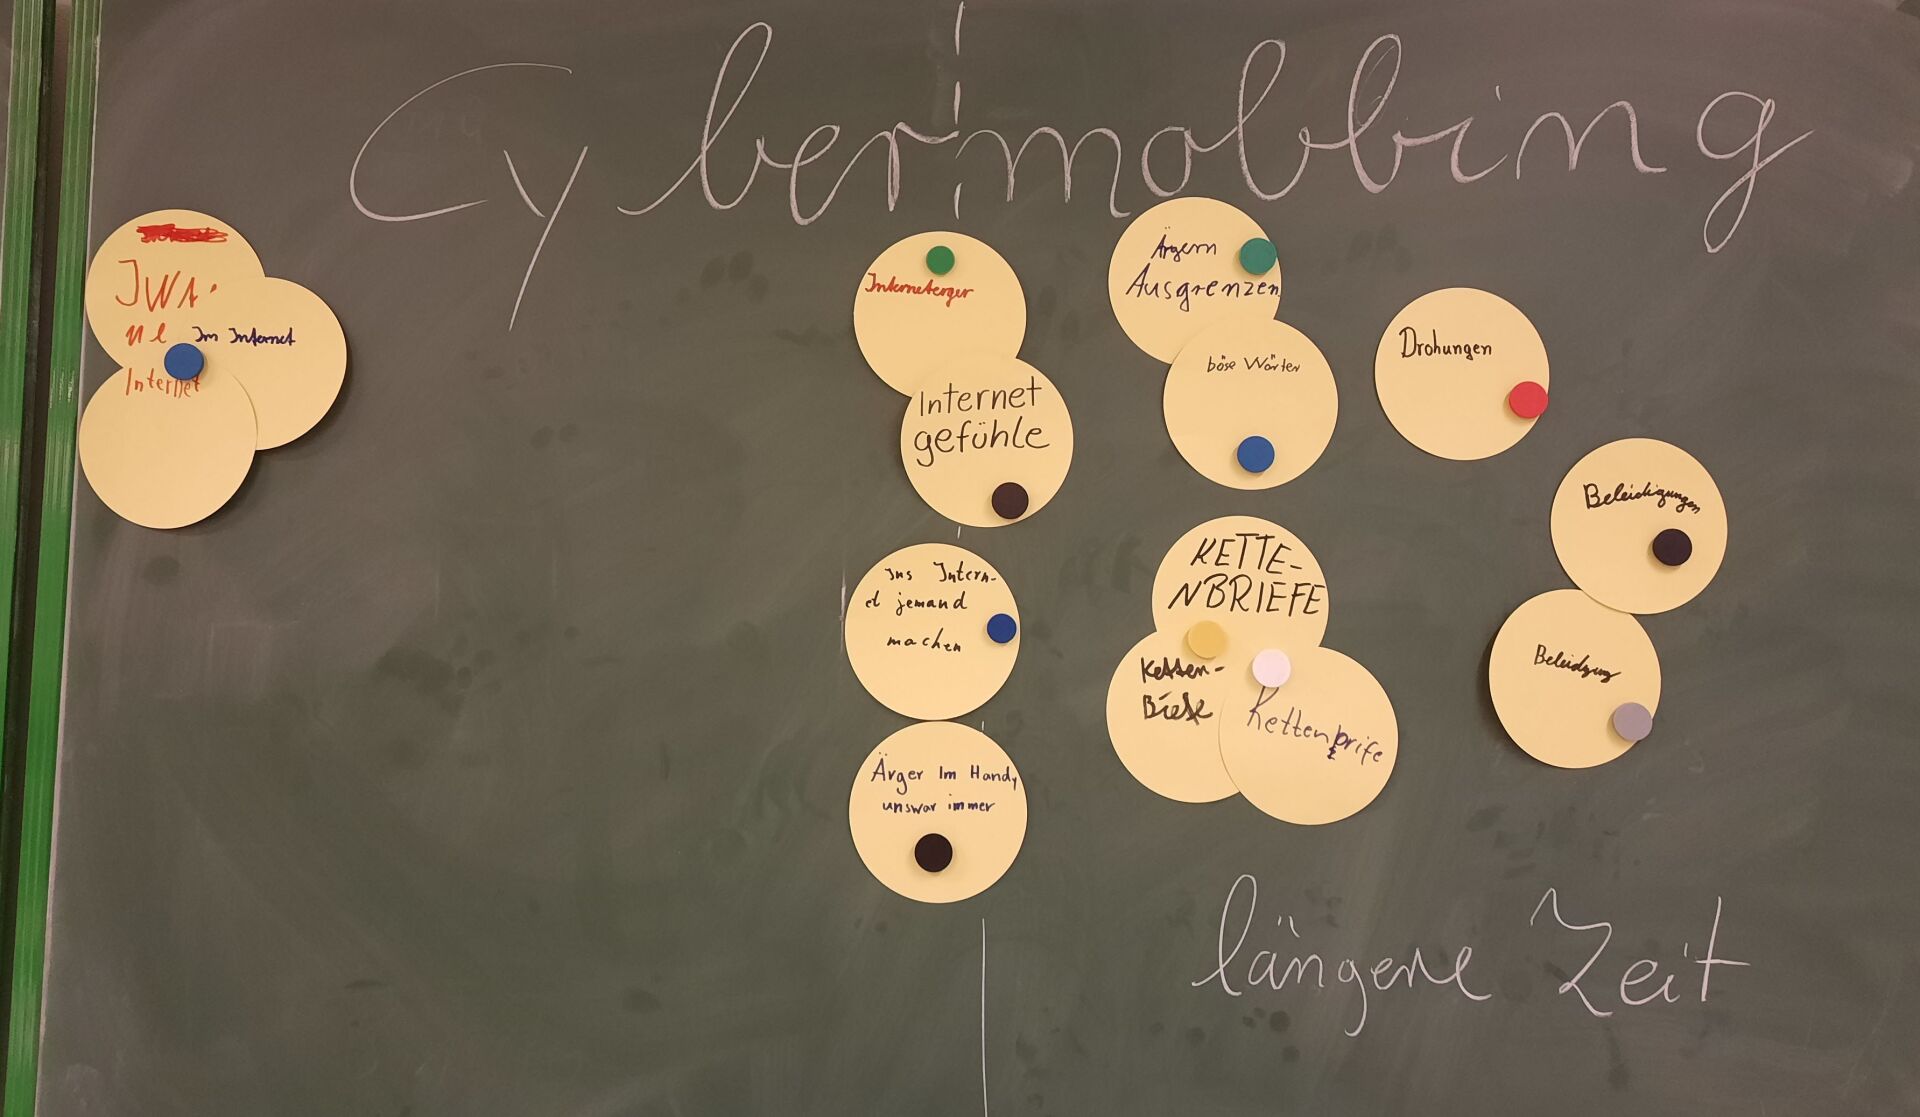 Cybermobbing
Im Internet
Internet
Interneterger
Internet
gefühle
Ins Intern-
et jemand
machen
Ärger Im Handy
unswar immer
Ärgern
Ausgrenzen
böse Wörter
Drohungen
KETTE-
NBRIEFE
Ketten-
Kettenbrife
Beleidigungen
Beleidgung
längere Zeit